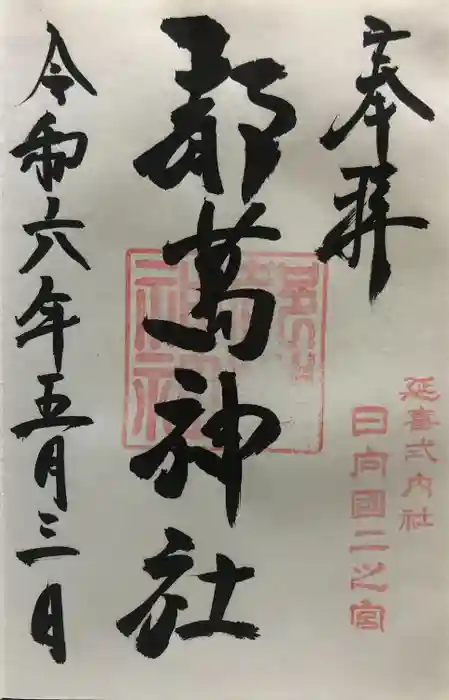 奉拝
延喜式内社
日向国二之宮
都萬神社
令和六年五月三日